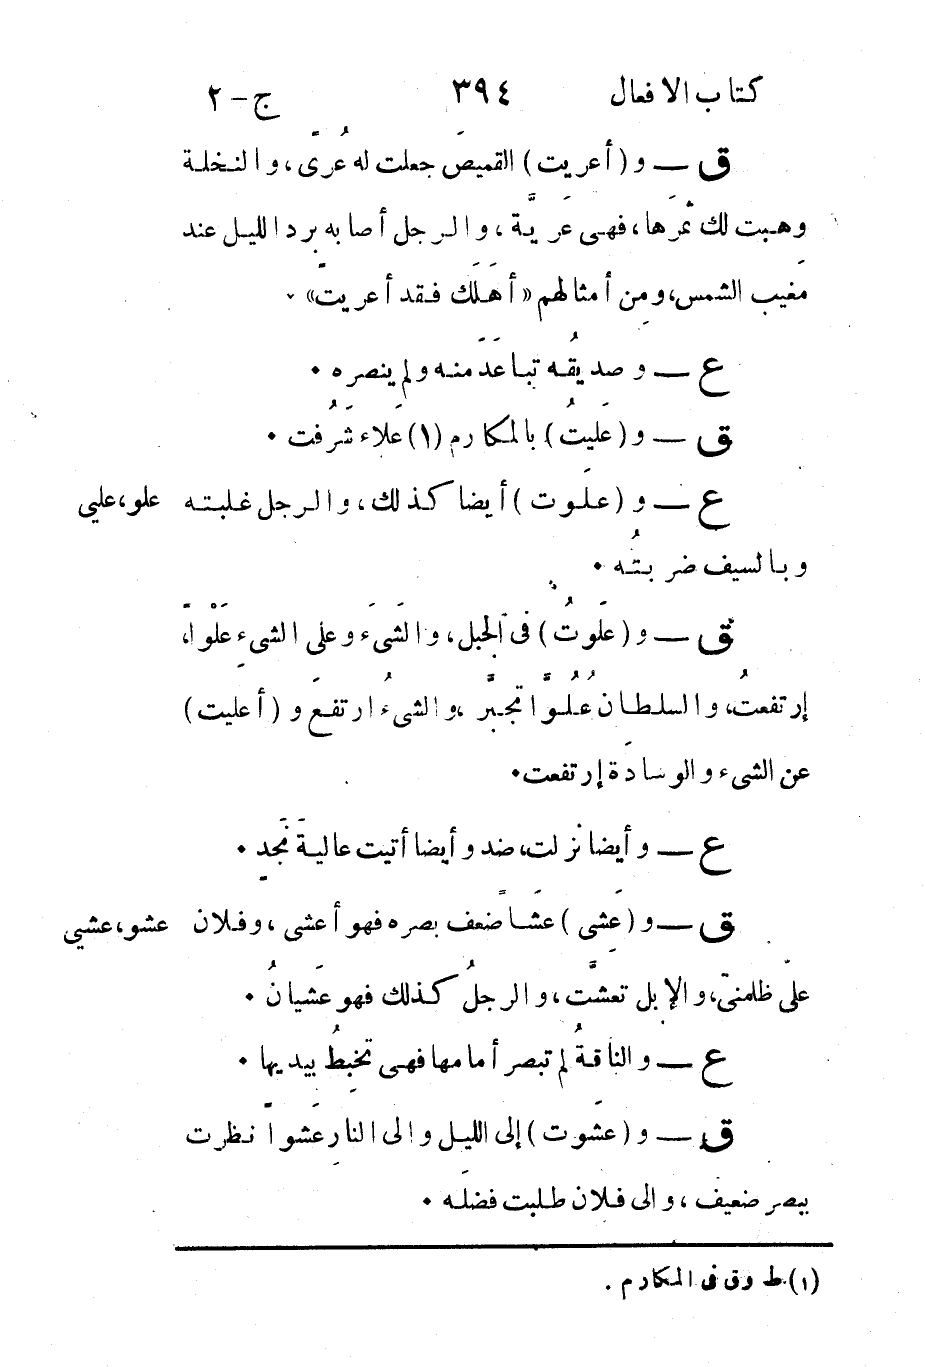 كتاب الافعال ٣٩٤ ج-٢
ق — و (أعريت) القميصَ جعلت له عُرًى، والنخلة
وهبت لك ثمرَها، فهى عَرِيَّة، والرجل أصابه برد الليل عند
مغيب الشمس، ومِن أمثالهم «أهلَك فَقد أعريتَ».
ع — و صديقُه تباعَدَ منه ولم ينصره.
ق — و (عَليتُ) بالمكارم (١) عَلاء شَرُفت.
ع — و (علَوت) أيضا كذلك، والرجل غلبته علو، علي
وبالسيف ضربتُه.
ق — و (علَوتُ) فى الجبل، والشىءَ وعلى الشىء عَلْوًا،
إرتفعتُ، والسلطان عُلُوًّا تجبَّر، والشىءُ ارتفعَ و (أعليت)
عن الشىء والوسادَة إرتفعت.
ع — وأيضا نزلت، ضد وأيضا أتيت عاليةَ نَجدٍ.
ق — و (عَشِى) عَشًا ضعف بصره فهو أعشى، وفلان عشو، عشي
علىّ ظلمنى، والإبل تعشَّت، والرجلُ كذلك فهو عَشيانُ.
ع — والناقةُ لم تبصر أمامها فهى تخبِطُ بيديها.
ق — و (عشَوت) إلى الليل والى النارِ عَشوًا نظرت
ببصرٍ ضعيف، والى فلان طلبت فضلَه.
(١) ط وق فى المكارم.